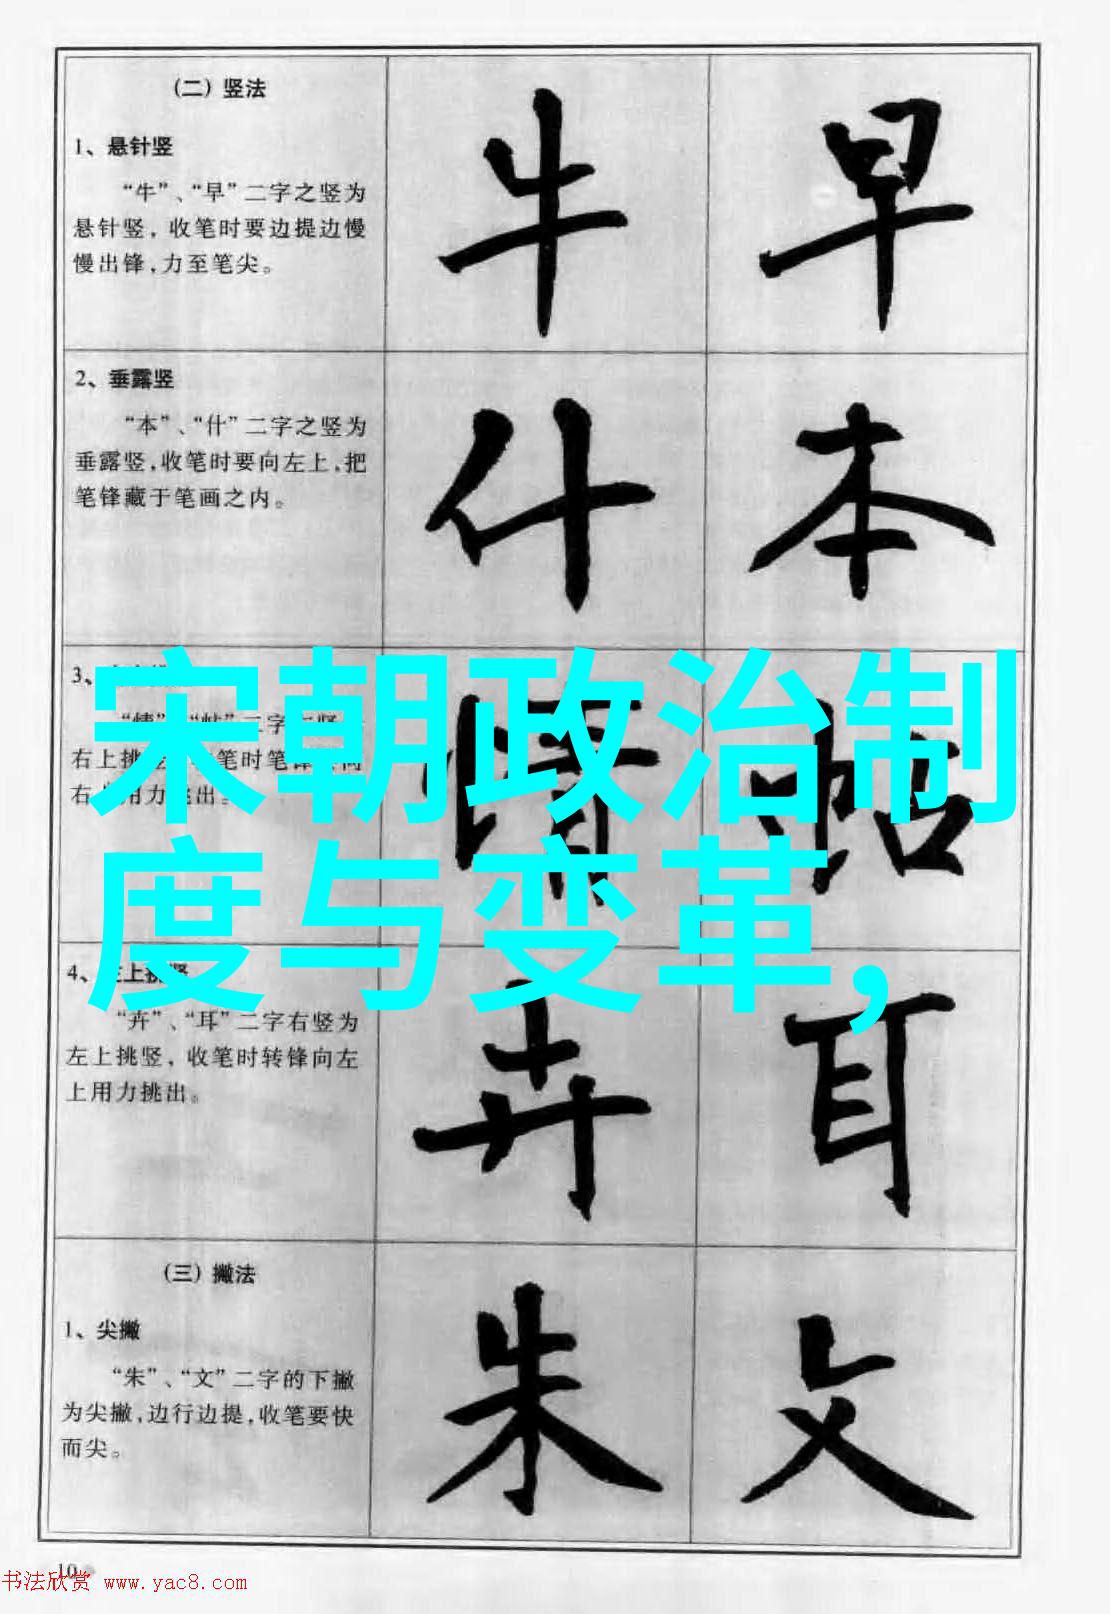 (二) 竖法
1、悬针竖
“牛”、“早”二字之竖为
悬针竖, 收笔时要边提边慢
慢出锋,力至笔尖。
牛 早
2、垂露竖
“本”、“什”二字之竖为
垂露竖,收笔时要向左上,把
笔锋藏于笔画之内。
什 本
3、
“情” “帖”二字 竖
右上挑 笔时笔锋 向
右 用力挑出。
情 帖
宋朝政治制
度与变革,
4、左上挑竖
“卉”、“耳”二字右竖为
左上挑竖, 收笔时转锋向左
上用力挑出。
卉 耳
(三) 撇法
1、尖撇
“朱”、“文”二字的下撇
为尖撇,边行边提,收笔要快
而尖。
朱 文
10
书法欣赏 www.yac8.com